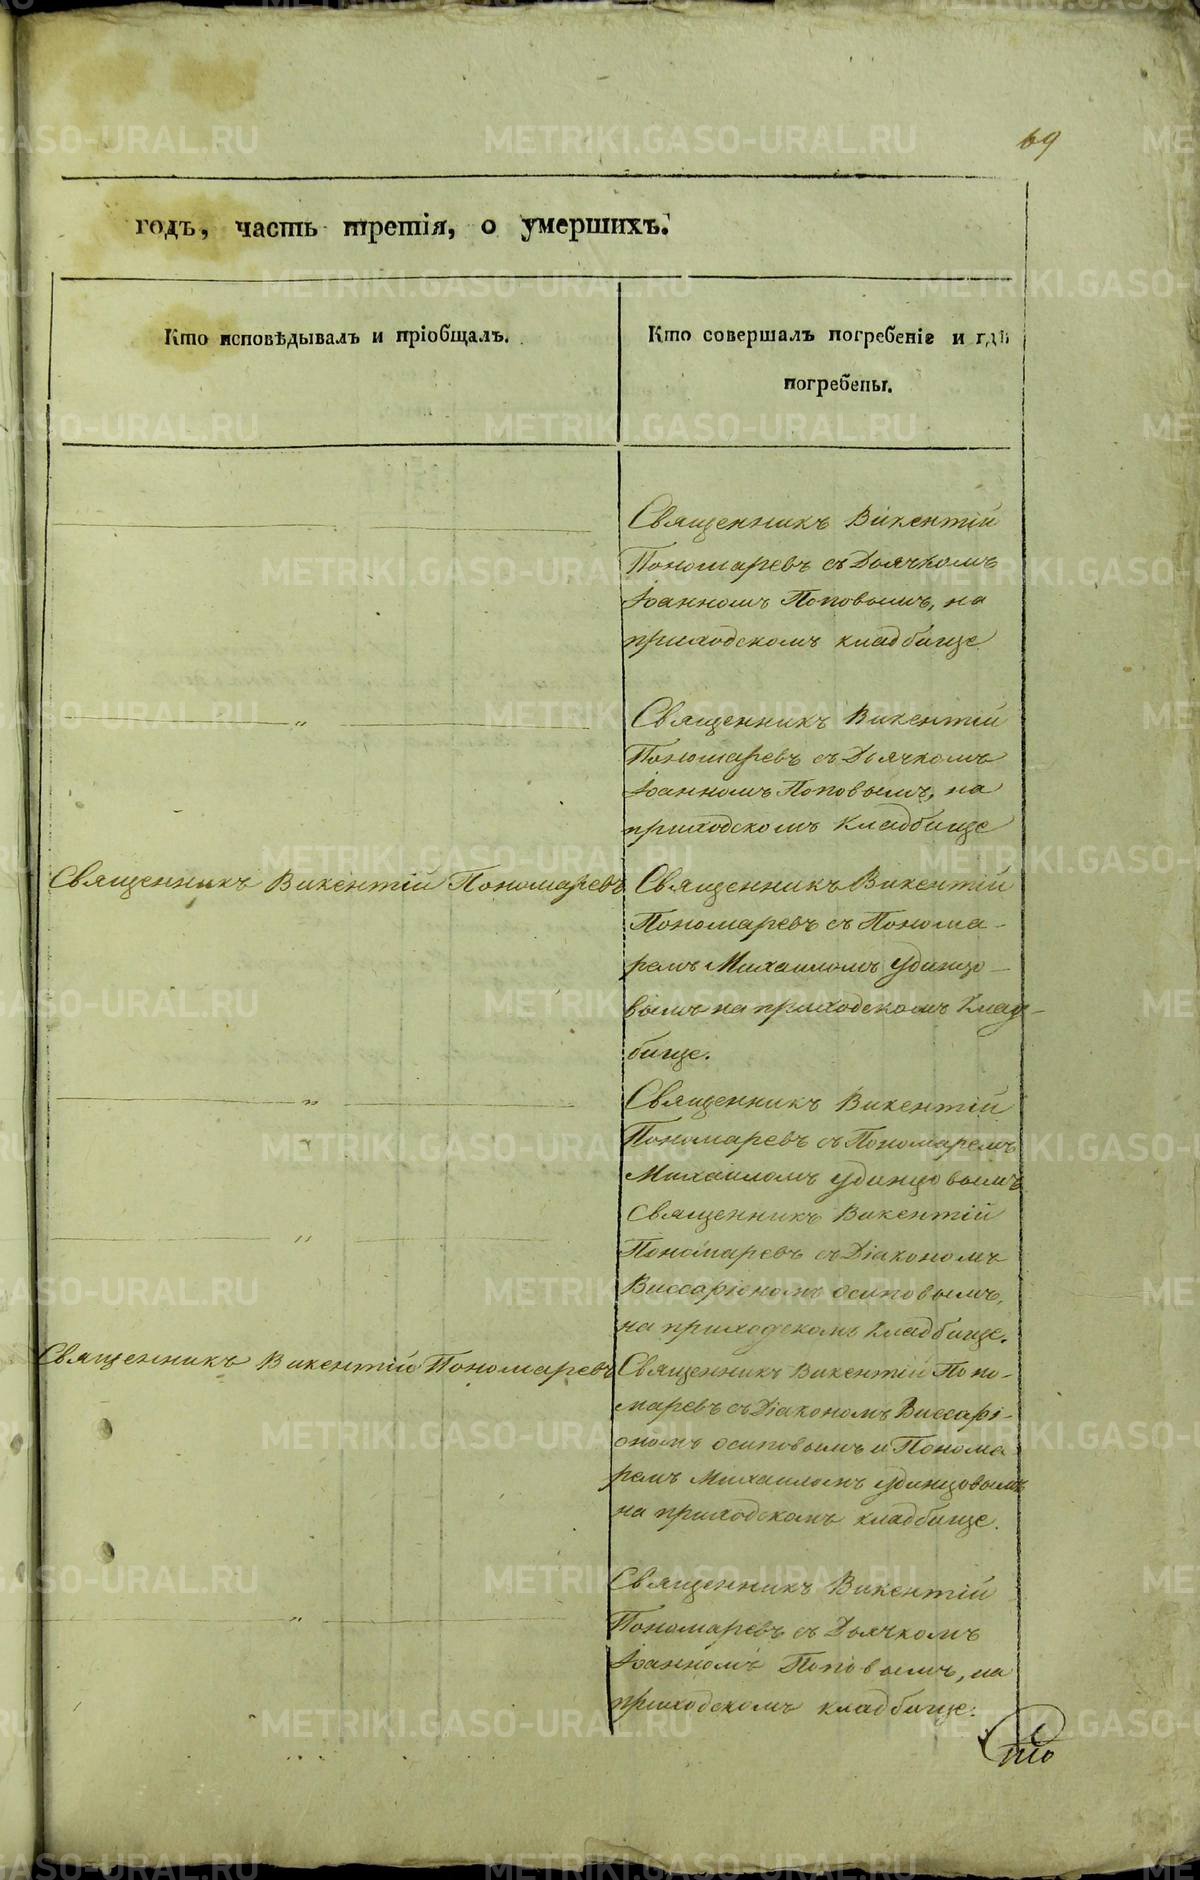 69
годъ, часть третія, о умершихъ.
Кто исповѣдывалъ и пріобщалъ.
Кто совершалъ погребеніе и гдѣ
погребены.
Священникъ Викентій
Пономаревъ съ Дьячкомъ
Іоанномъ Поповымъ, на
приходскомъ кладбище
Священникъ Викентій
Пономаревъ съ Дьячкомъ
Іоанномъ Поповымъ, на
приходскомъ кладбище
Священникъ Викентій Пономаревъ
Священникъ Викентій
Пономаревъ съ Понома-
ремъ Михаиломъ Удинцо-
вымъ на приходскомъ клад-
бище.
Священникъ Викентій
Пономаревъ съ Пономаремъ
Михаиломъ Удинцовымъ
Священникъ Викентій
Пономаревъ съ Діакономъ
Виссаріономъ Осиповымъ,
на приходскомъ кладбище.
Священникъ Викентій Пономаревъ
Священникъ Викентій Поно-
маревъ съ Діакономъ Виссарі-
ономъ Осиповымъ и Понома
ремъ Михаиломъ Удинцовымъ
на приходскомъ кладбище.
Священникъ Викентій
Пономаревъ съ Дьячкомъ
Іоанномъ Поповымъ, на
приходскомъ кладбище.
METRIKI.GASO-URAL.RU